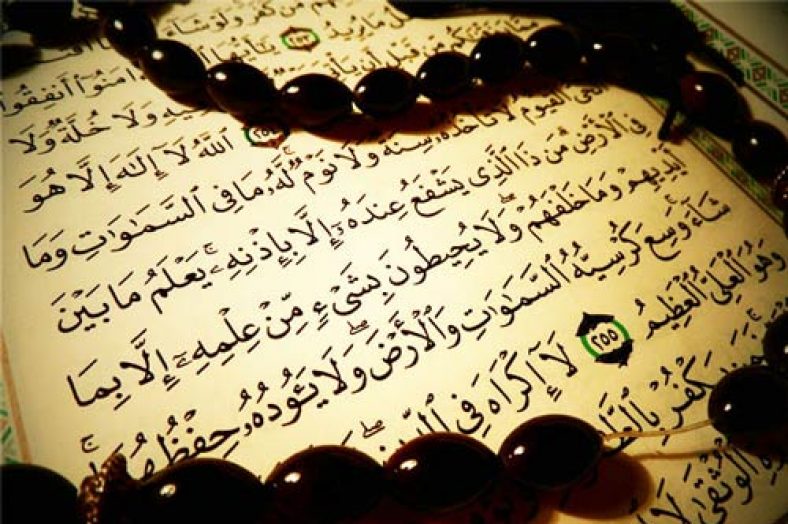 مَّن كَفَرَ وَلَوْ شَآءَ
مَا يُرِيدُ ٢٥٣ يَٰٓأَيُّهَا ءَامَنُوٓا۟ أَنفِقُوا۟
مِّن قَبْلِ أَن يَأْتِىَ فِيهِ وَلَا خُلَّةٌ وَلَا
٢٥٤ ٱللَّهُ لَآ إِلَٰهَ إِلَّا هُوَ
ٱلْحَىُّ ٱلْقَيُّومُ لَا تَأْخُذُهُۥ سِنَةٌ وَلَا نَوْمٌ لَّهُۥ مَا فِى ٱلسَّمَٰوَٰتِ وَمَا
فِى ٱلْأَرْضِ مَن ذَا ٱلَّذِى يَشْفَعُ عِندَهُۥٓ إِلَّا بِإِذْنِهِۦ ۚ يَعْلَمُ مَا بَيْنَ
أَيْدِيهِمْ وَمَا خَلْفَهُمْ ۖ وَلَا يُحِيطُونَ بِشَىْءٍ مِّنْ عِلْمِهِۦٓ إِلَّا بِمَا
شَآءَ ۚ وَسِعَ كُرْسِيُّهُ ٱلسَّمَٰوَٰتِ وَٱلْأَرْضَ ۖ وَلَا يَـُٔودُهُۥ حِفْظُهُمَا ۚ
وَهُوَ ٱلْعَلِىُّ ٱلْعَظِيمُ ٢٥٥ لَآ إِكْرَاهَ فِى ٱلدِّينِ ۖ
فَمَن يَكْفُرْ
ٱلْوُثْقَىٰ لَا